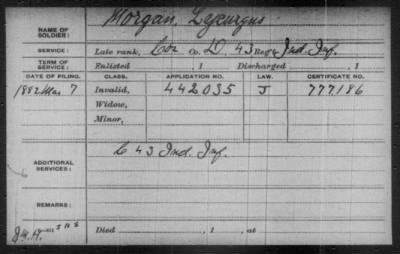 NAME OF SOLDIER: Morgan, Lycurgus
SERVICE: Late rank, Cor Co. D, 43 Reg't Ind. Inf.
TERM OF SERVICE: Enlisted , 1 Discharged , 1
DATE OF FILING. CLASS. APPLICATION NO. LAW. CERTIFICATE NO.
1882 Mar 7 Invalid, 442035 J 777186
Widow,
Minor,
ADDITIONAL SERVICES: C 43 Ind. Inf.
REMARKS:
Died , 1 , at